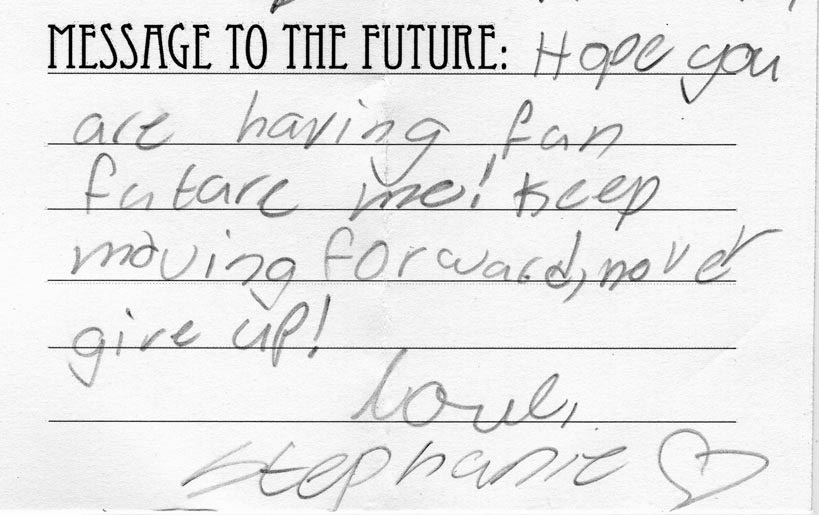 MESSAGE TO THE FUTURE: Hope you
are having fun
future me! Keep
moving forward, never
give up!
Love,
Stephanie ♡